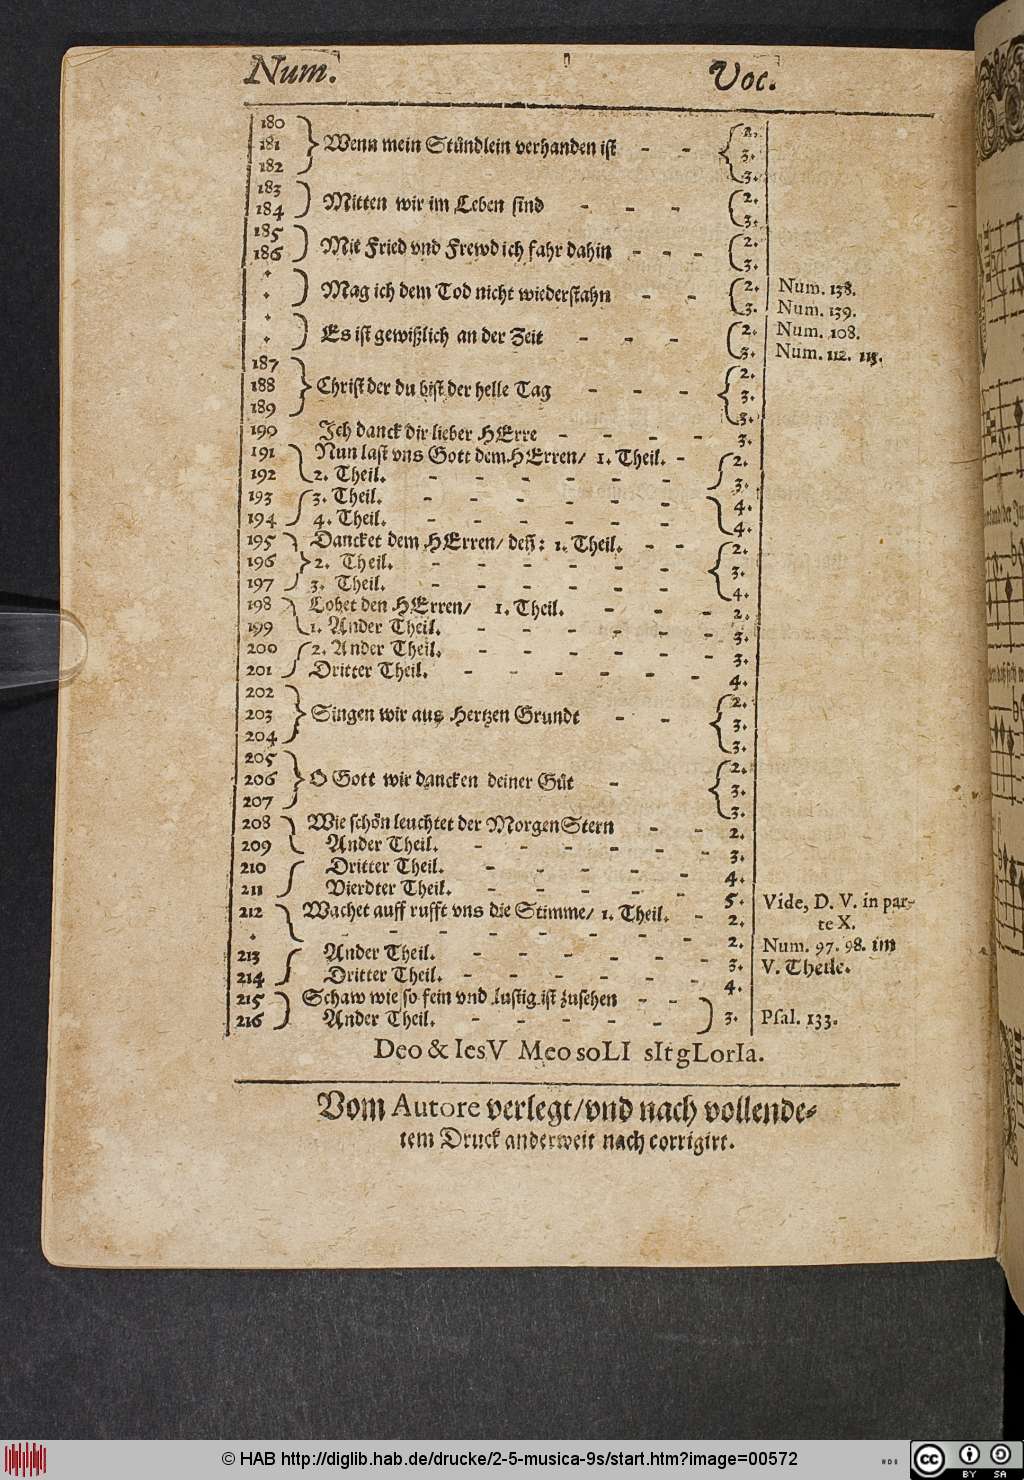 Num. Voc.
180 2.
181 Wenn mein Stůndlein verhanden ist - - 3.
182 3.
183 2.
184 Mitten wir im Leben sind - - - 3.
185 2.
186 Mit Fried vnd Frewd ich fahr dahin - - - 3.
* 2. Num. 138.
* Mag ich dem Tod nicht wiederstahn - - 3. Num. 139.
* 2. Num. 108.
* Es ist gewißlich an der Zeit - - - 3. Num. 112. 113.
187 2.
188 Christ der du bist der helle Tag - - - 3.
189 3.
190 Ich danck dir lieber HErre - - - - 3.
191 Nun last vns Gott dem HErren/ 1. Theil. - 2.
192 2. Theil. - - - - - - 3.
193 3. Theil. - - - - - - 4.
194 4. Theil. - - - - - - 4.
195 Dancket dem HErren/ deñ: 1. Theil. - - 2.
196 2. Theil. - - - - - - 3.
197 3. Theil. - - - - - - 4.
198 Lobet den HErren/ 1. Theil. - - - 2.
199 1. Ander Theil. - - - - - - 3.
200 2. Ander Theil. - - - - - - 3.
201 Dritter Theil. - - - - - - 4.
202 2.
203 Singen wir aus Hertzen Grundt - - 3.
204 3.
205 2.
206 O Gott wir dancken deiner Gůt - 3.
207 3.
208 Wie schŏn leuchtet der MorgenStern - - 2.
209 Ander Theil. - - - - - - 3.
210 Dritter Theil. - - - - - 4.
211 Vierdter Theil. - - - - - 5. Vide, D. V. in par-
212 Wachet auff rufft vns die Stimme/ 1. Theil. - 2. te X.
* - - - - - - - 2. Num. 97. 98. im
213 Ander Theil. - - - - - - 3. V. Theile.
214 Dritter Theil. - - - - - - 4.
215 Schaw wie so fein vnd lustig ist zusehen - -
216 Ander Theil. - - - - - 3. Psal. 133.
Deo & IesV Meo soLI sIt gLorIa.
Vom Autore verlegt/vnd nach vollende-
tem Druck anderweit nach corrigirt.
© HAB http://diglib.hab.de/drucke/2-5-musica-9s/start.htm?image=00572
HAB
cc BY SA